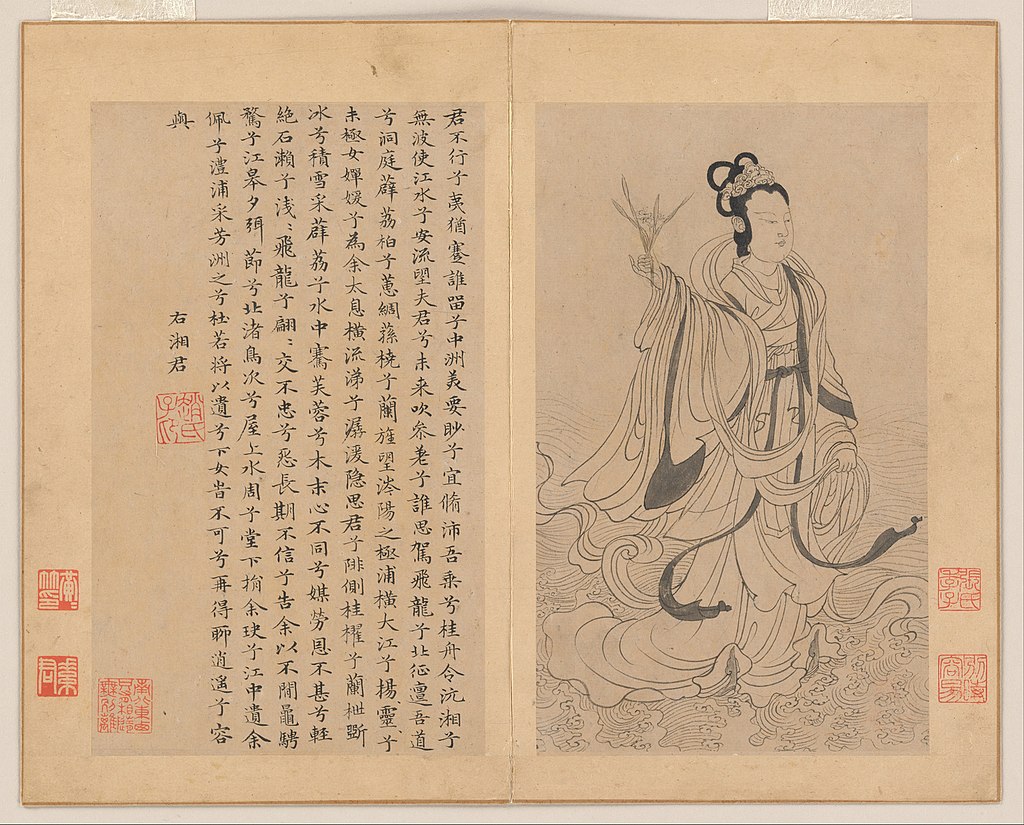 君不行兮夷猶蹇誰畱兮中洲美要眇兮宜脩沛吾乘兮桂舟令沅湘兮
無波使江水兮安流望夫君兮未来吹參差兮誰思駕飛龍兮北征邅吾道
兮洞庭薜荔柏兮蕙綢蓀橈兮蘭旌望涔陽之極浦橫大江兮揚靈兮
未極女嬋媛兮為余太息橫流涕兮潺湲隱思君兮陫側桂櫂兮蘭枻斲
冰兮積雪采薜荔兮水中搴芙蓉兮木末心不同兮媒勞恩不甚兮輕
絕石瀨兮淺〻飛龍兮翩〻交不忠兮怨長期不信兮告余以不閒鼂騁
騖兮江皋夕弭節兮北渚鳥次兮屋上水周兮堂下捐余玦兮江中遺余
佩兮澧浦采芳洲之兮杜若將以遺兮下女旹不可兮再得聊逍遙兮容
與
右湘君
趙氏子昂